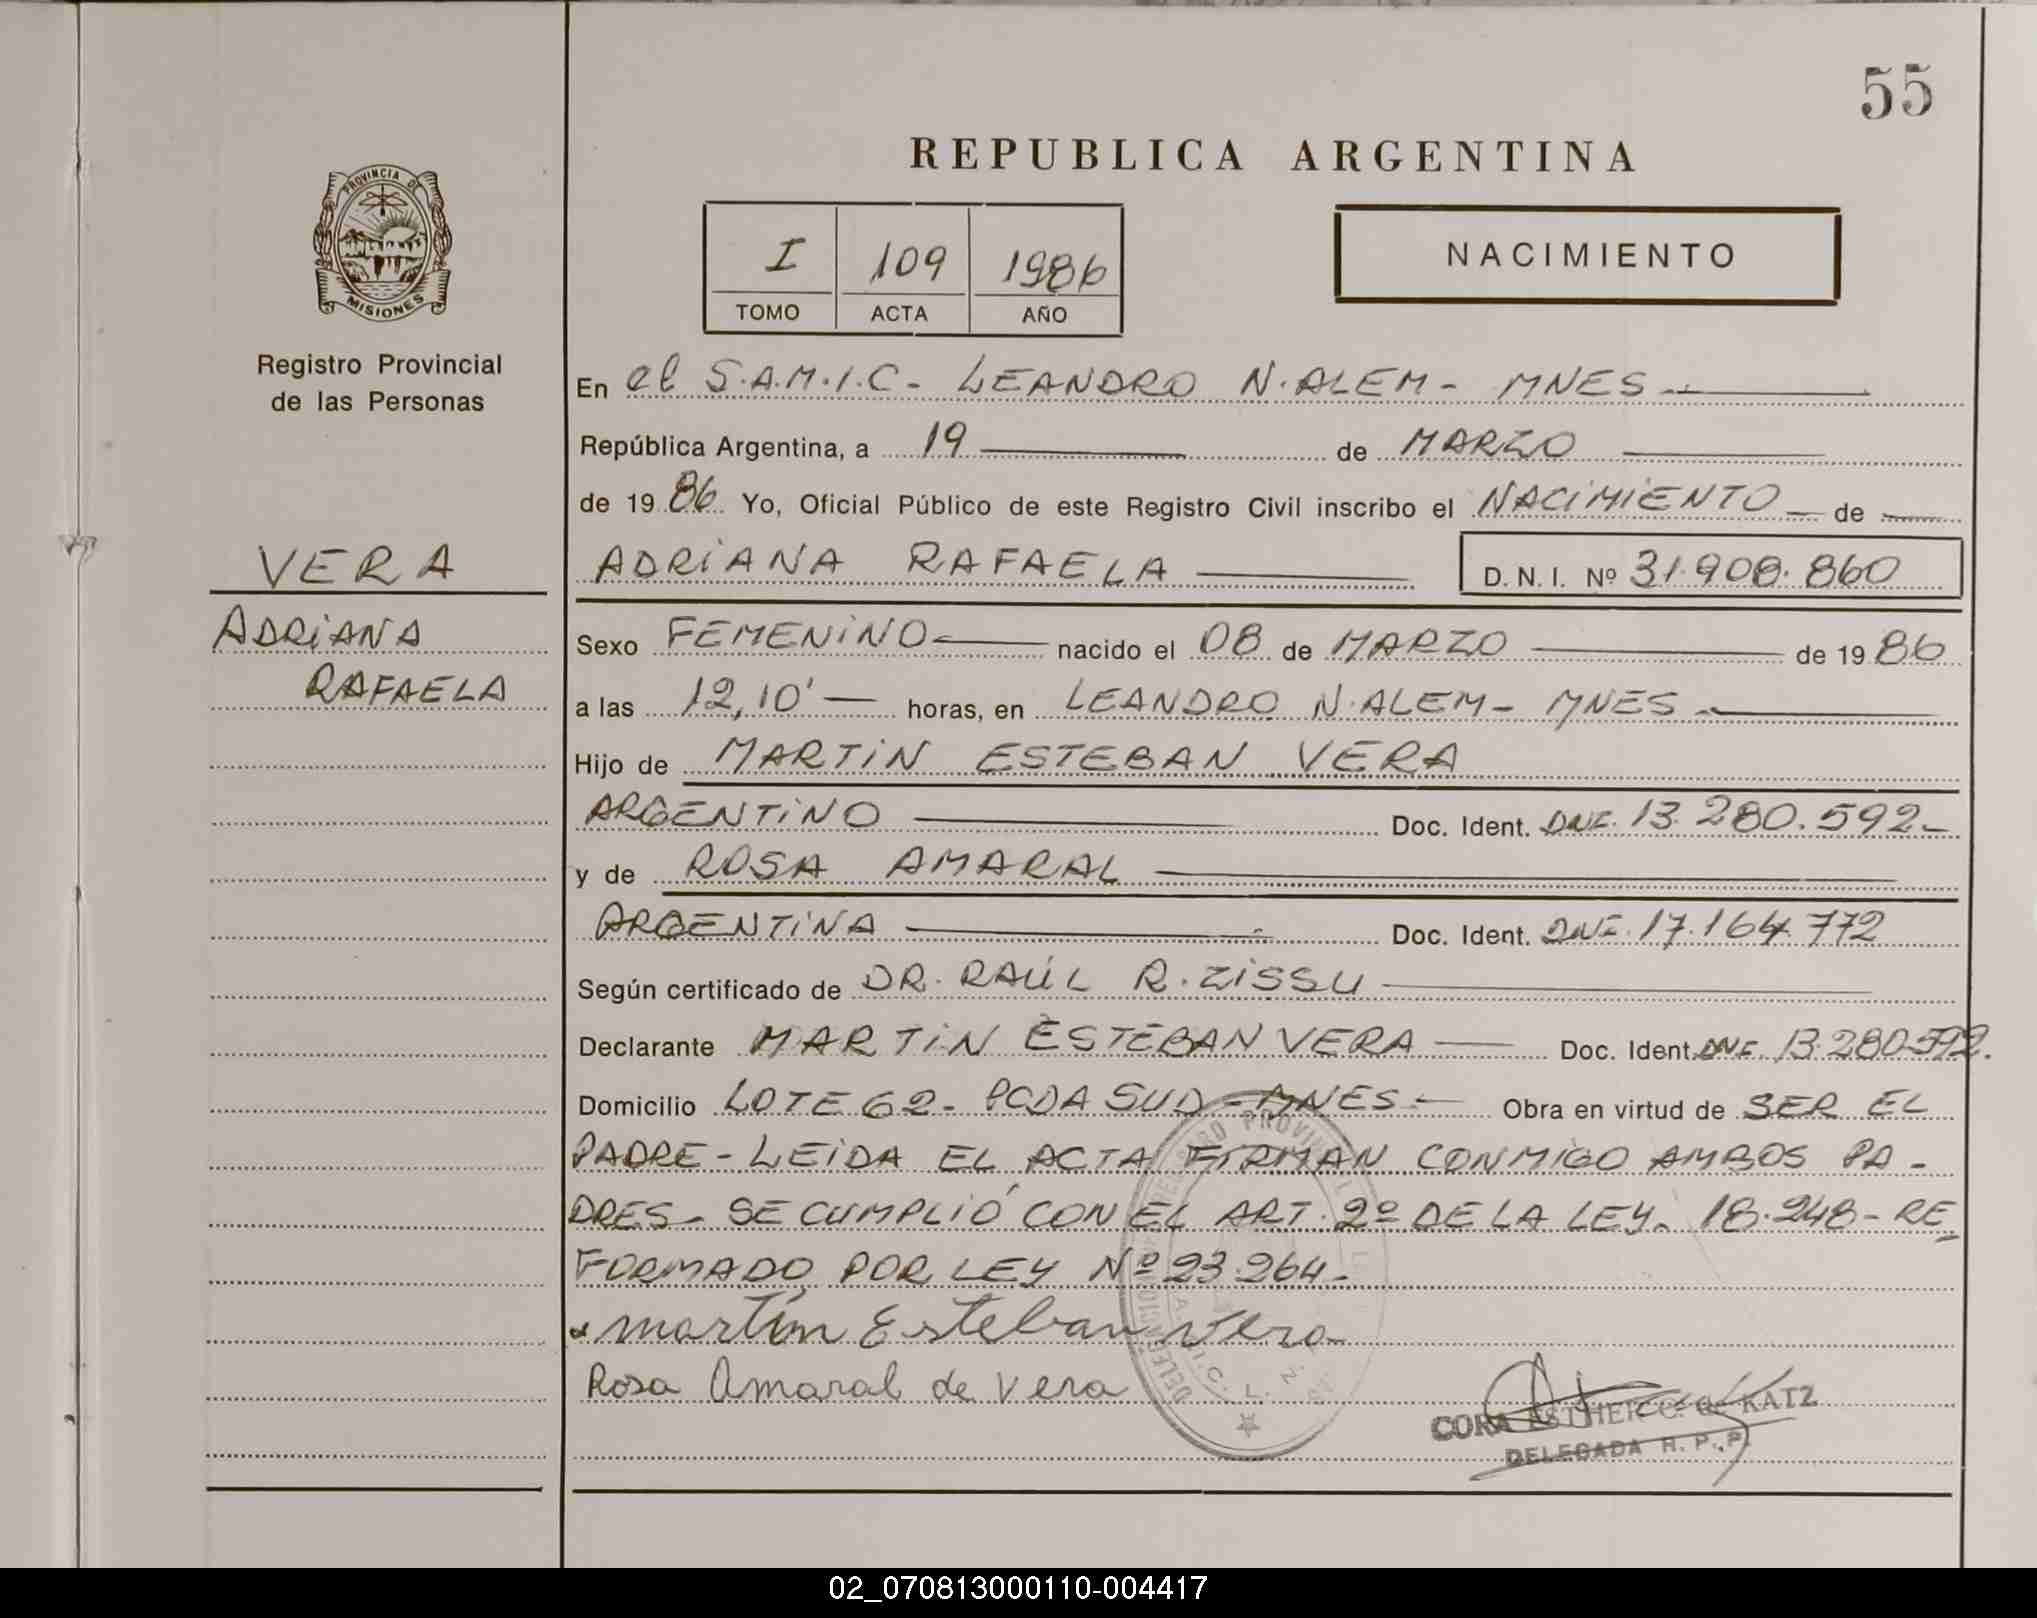 55
REPUBLICA ARGENTINA
PROVINCIA DE
MISIONES
I 109 1986
TOMO ACTA AÑO
NACIMIENTO
Registro Provincial
de las Personas
En el S.A.M.I.C- LEANDRO N.ALEM- MNES
República Argentina, a 19 de MARZO
de 1986 Yo, Oficial Público de este Registro Civil inscribo el NACIMIENTO de
VERA
ADRIANA RAFAELA D.N.I. Nº 31.908.860
ADRIANA
RAFAELA
Sexo FEMENINO nacido el 08 de MARZO de 1986
a las 12,10' horas, en LEANDRO N.ALEM- MNES
Hijo de MARTIN ESTEBAN VERA
ARGENTINO Doc. Ident. DNI. 13.280.592-
y de ROSA AMARAL
ARGENTINA Doc. Ident. DNI. 17.164.772
Según certificado de DR. RAÚL R. ZISSU
Declarante MARTIN ESTEBAN VERA Doc. Ident. DNI. 13.280.592.
Domicilio LOTE 62- PCDA SUD-MNES- Obra en virtud de SER EL
PADRE- LEIDA EL ACTA FIRMAN CONMIGO AMBOS PA-
DRES- SE CUMPLIÓ CON EL ART. 2º DE LA LEY. 18.248- RE
FORMADO POR LEY Nº 23.264-
Martín Esteban Vera
Rosa Amaral de Vera
CORA ESTHER C. de KATZ
DELEGADA R. P. P.
02_070813000110-004417